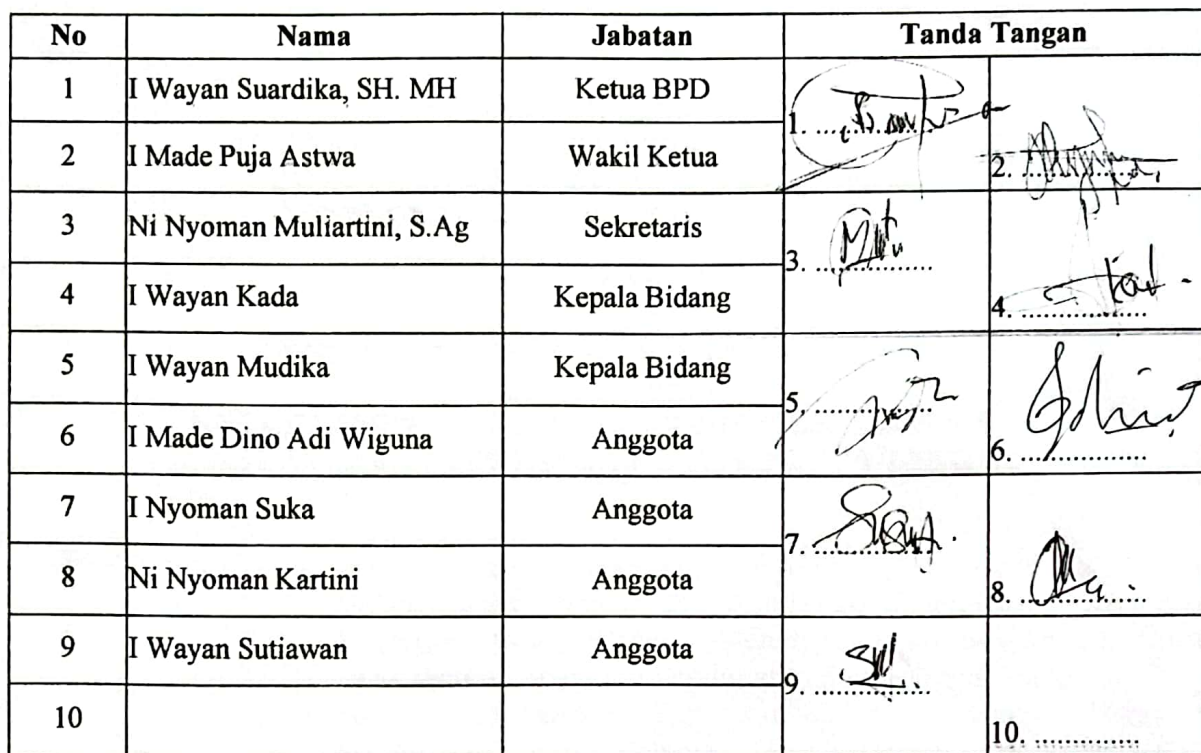 No Nama Jabatan Tanda Tangan
1 I Wayan Suardika, SH. MH Ketua BPD 1. ................
2 I Made Puja Astwa Wakil Ketua 2. ................
3 Ni Nyoman Muliartini, S.Ag Sekretaris 3. ................
4 I Wayan Kada Kepala Bidang 4. ................
5 I Wayan Mudika Kepala Bidang 5. ................
6 I Made Dino Adi Wiguna Anggota 6. ................
7 I Nyoman Suka Anggota 7. ................
8 Ni Nyoman Kartini Anggota 8. ................
9 I Wayan Sutiawan Anggota 9. ................
10 10. ................